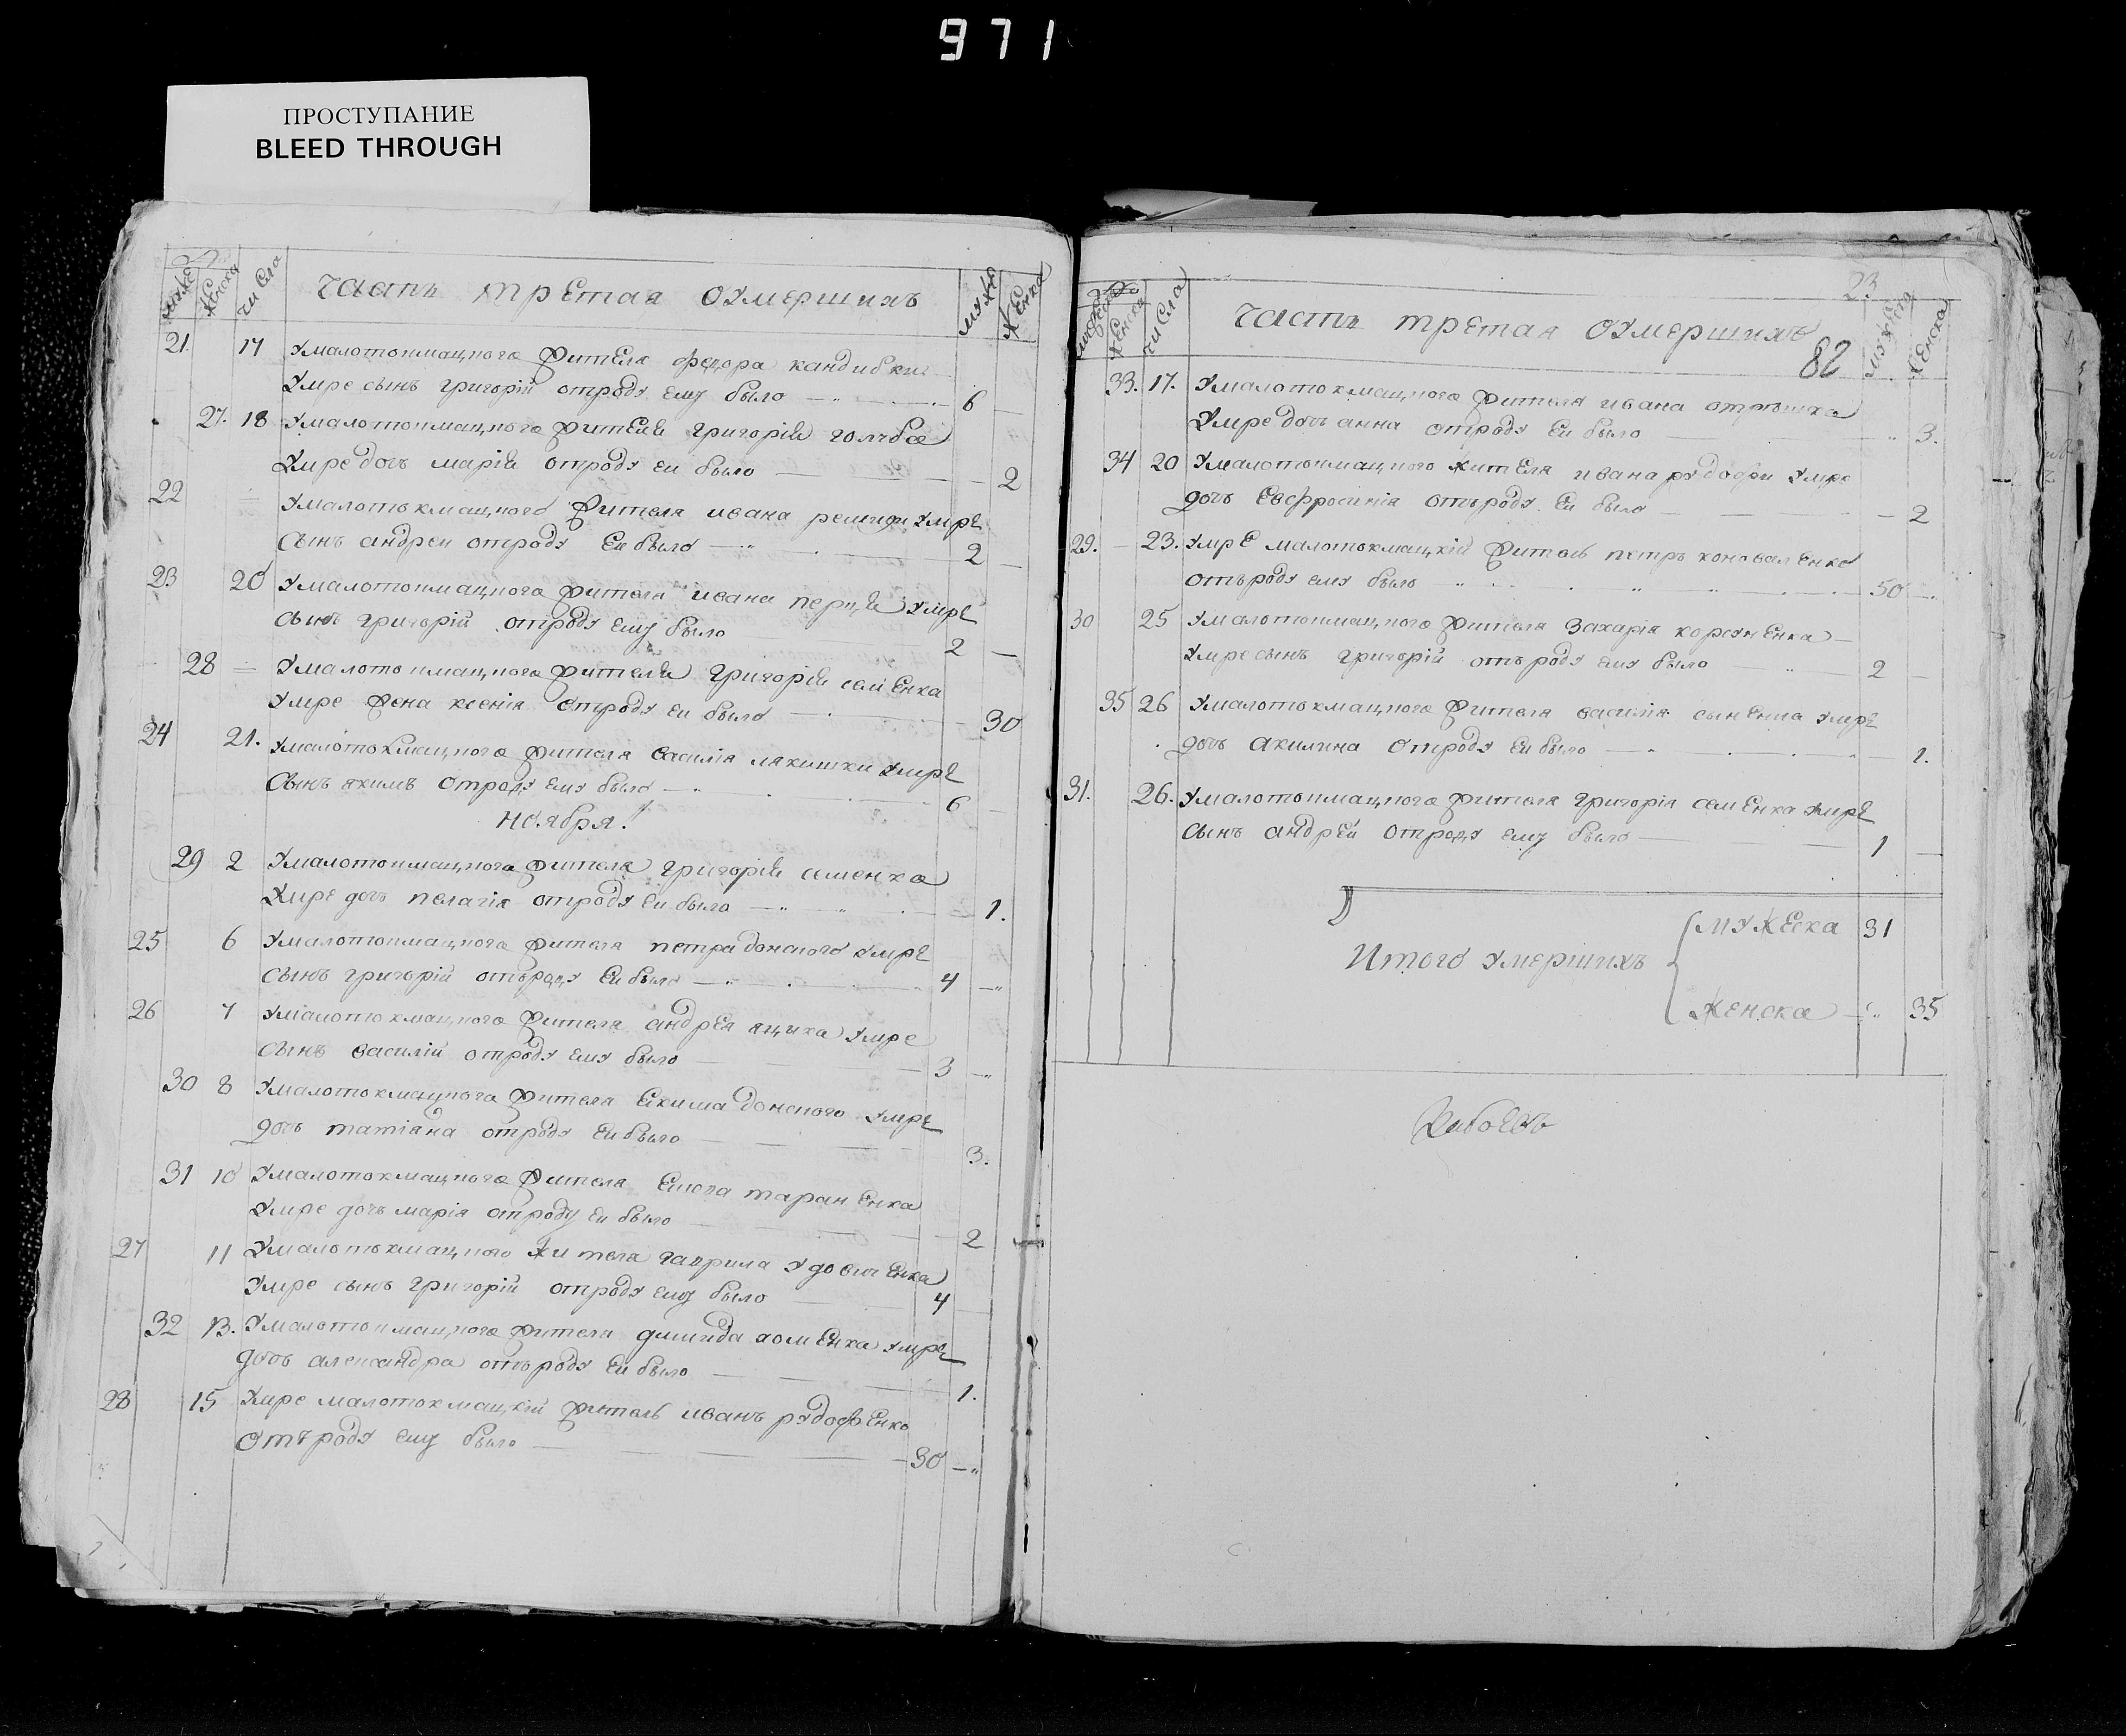 971
ПРОСТУПАНИЕ
BLEED THROUGH
муже женска числа часть третая оумершихъ муже женска
21. 17 Умалотокмацкого жителя федора кандибки
Умре сынъ григорій отроду ему было 6
27. 18 Умалотокмацкого жителя григорія голуба
Умре дочь марія отроду ей было 2
22 Умалотокмацкого жителя ивана Умре
Сынъ андрей отроду ей было 2
23 20 Умалотокмацкого жителя ивана перця Умре
сынъ григорій отроду ему было 2
28 Умалотокмацкого жителя григорія семенка
Умре жена ксенія отроду ей было 30
24 21. Умалотокмацкого жителя василія Умре
Сынъ якимъ отроду ему было 6
Ноября
29 2 Умалотокмацкого жителя григорія семенка
Умре дочь пелагія отроду ей было 1.
25 6 Умалотокмацкого жителя петра донского Умре
Сынъ григорій отъроду ей было 4
26 7 Умалотокмацкого жителя андрея яцыка Умре
Сынъ василій отроду ему было 3
30 8 Умалотокмацкого жителя Екима донского Умре
дочь татіяна отроду ей было 3.
31 10 Умалотокмацкого жителя таранЕнка
Умре дочь марія отроду ей было 2
27 11 Умалотокмацкого жителя гаврила Удовиченка
Умре сынъ григорій отроду ему было 4
32 13. Умалотокмацкого жителя хоменка Умре
дочь александра отъроду ей было 1.
28 15 Умре малотокмацкій житель иванъ рудофЕнко
отъроду ему было 30
23
женска числа часть третая оумершихъ женска
82
33. 17. Умалотокмацкого жителя ивана
Умре дочь анна отроду ей было 3.
34 20 Умалотокмацкого жителя ивана рудофи Умре
дочь Евфросинія отъроду ей было 2
29. 23. Умре малотокмацкій житель петръ коновалЕнко
отъроду ему было 50
30 25 Умалотокмацкого жителя захарія корсунЕнка
Умре сынъ григорій отъроду ему было 2
35 26 Умалотокмацкого жителя василія Умре
дочь акилина отроду ей было 1.
31. 26. Умалотокмацкого жителя григорія семЕнка Умре
сынъ андрей отроду ему было 1
мужеска 31
Итого умершихъ
женска 35